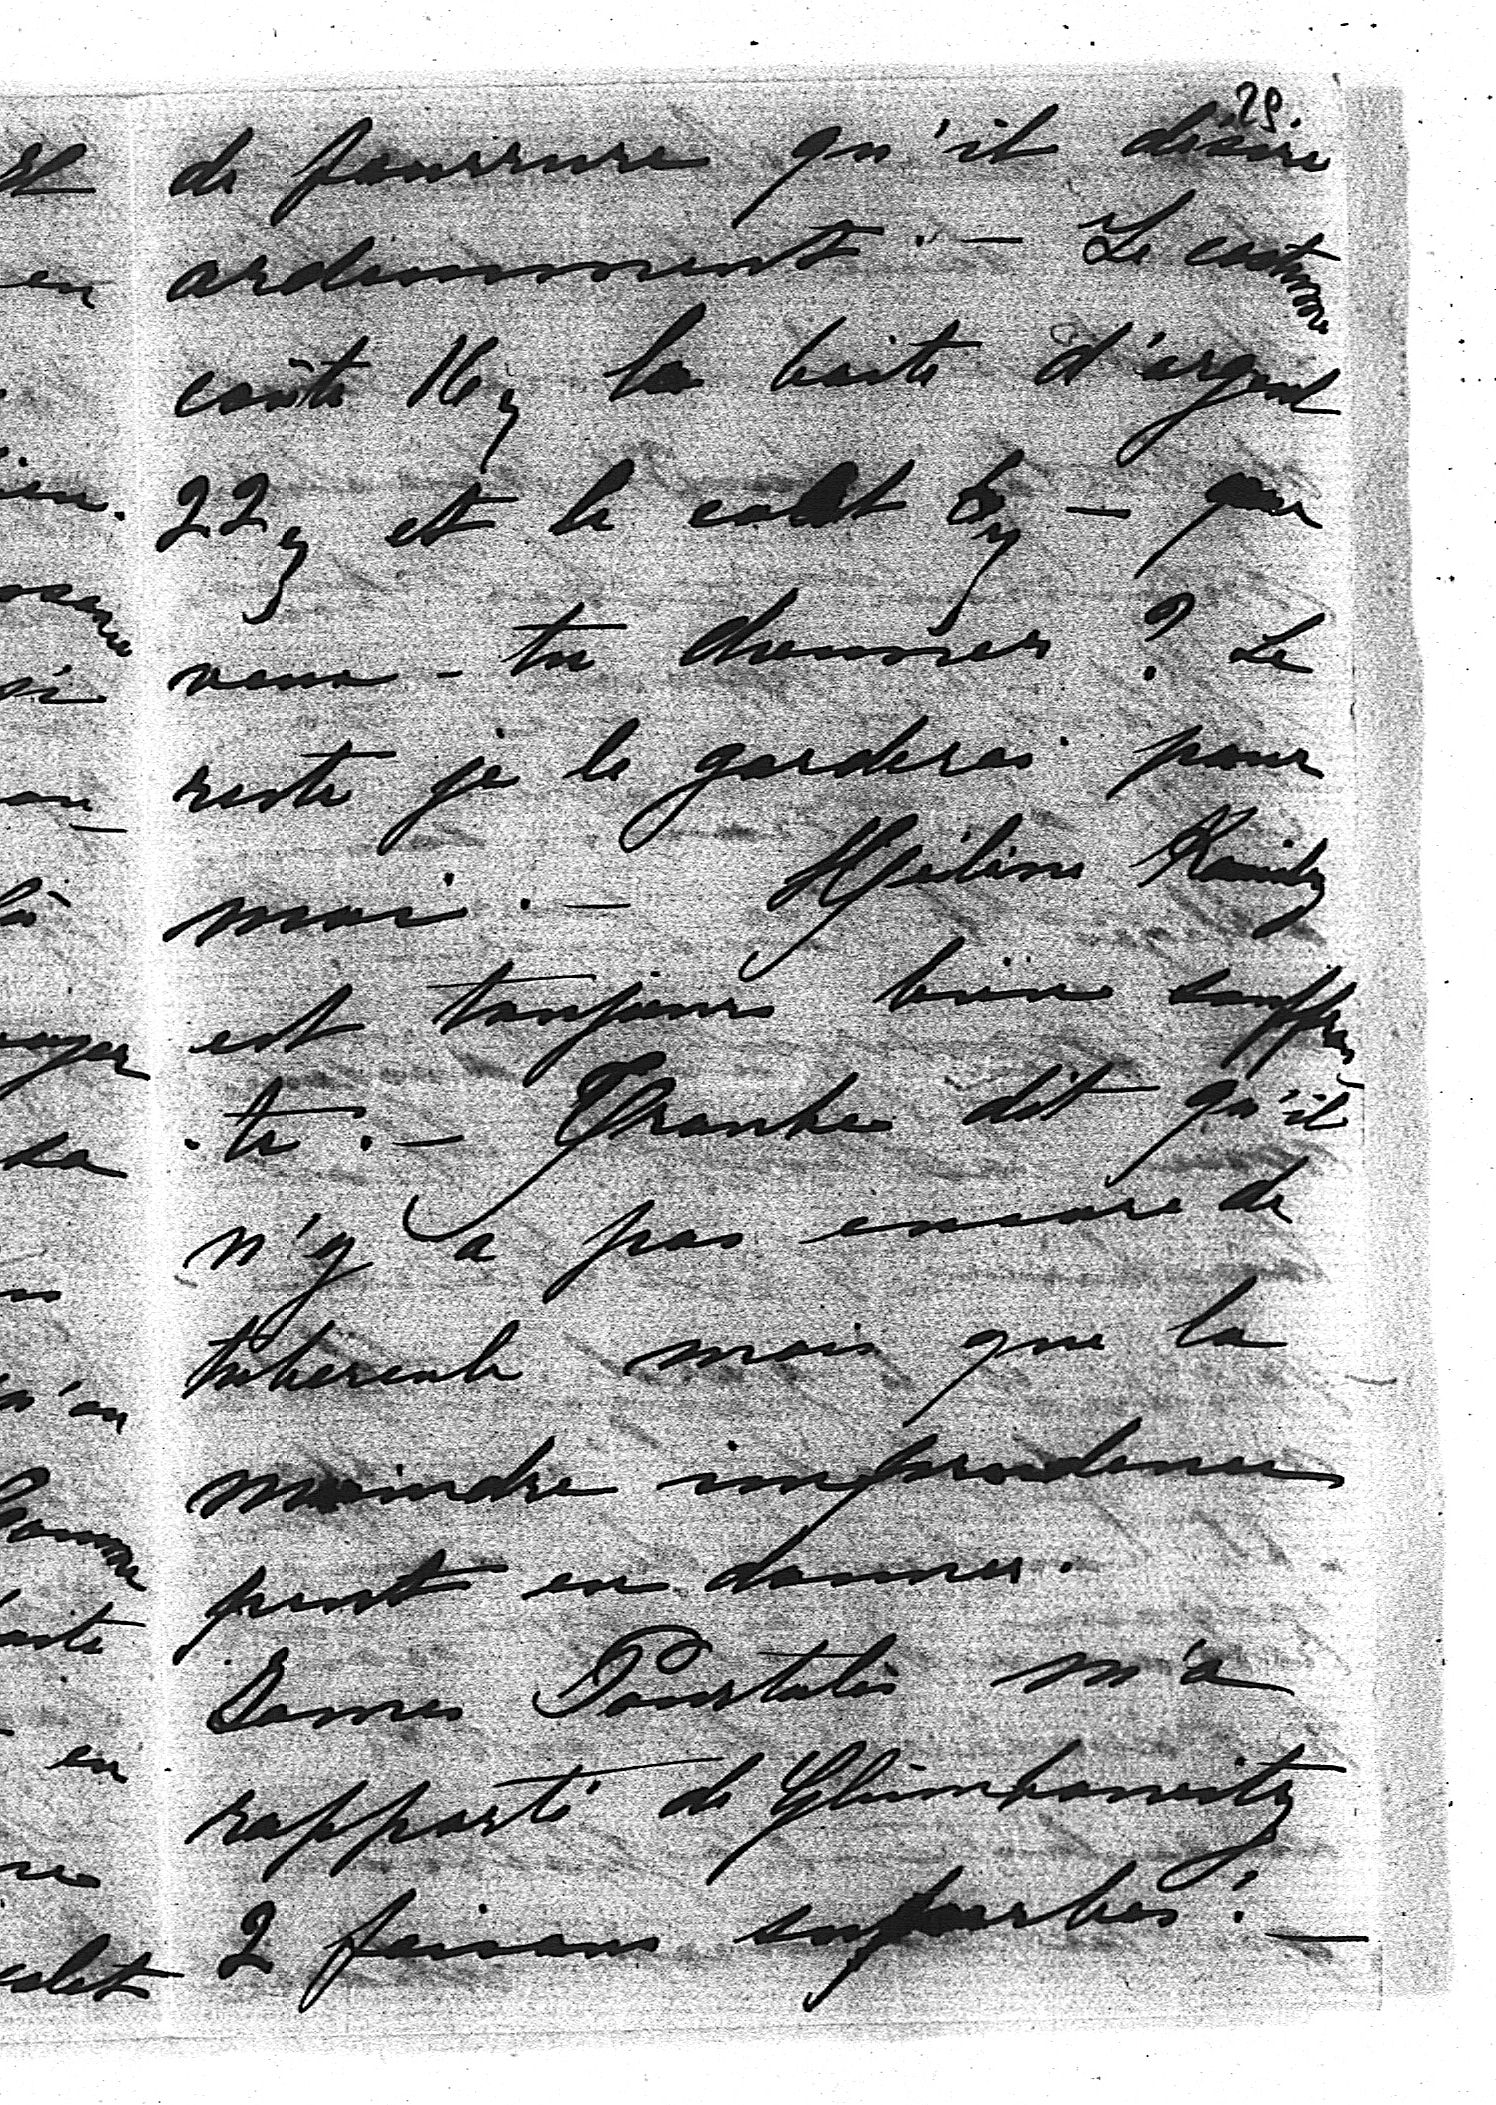 29.
de fourrure qu'il désire
ardemment. — Le costume
coûte 16, la boite d'argent
22, et le colet — que
veux-tu donner ? Le
reste je le garderai pour
moi. — Hélène
est toujours bien souffran
te. — Franke dit qu'il
n'y a pas encore de
tubercule mais que la
moindre imprudence
peut en donner.
James Pourtalès m'a
rapporté de Glumbowitz
2 faisans superbes! —